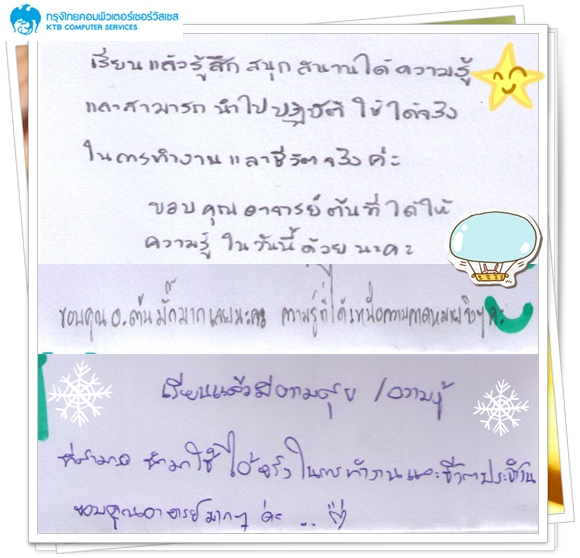 กรุงไทยคอมพิวเตอร์เซอร์วิสเซส
KTB COMPUTER SERVICES
เรียนแล้วรู้สึก สนุก สนานได้ความรู้
และสามารถ นำไปปฏิบัติ ใช้ได้จริง
ในการทำงาน และชีวิตจริงค่ะ
ขอบคุณอาจารย์ต้นที่ได้ให้
ความรู้ ในวันนี้ด้วยนะคะ
ขอบคุณ อ.ต้นมั๊กมากเลยนะคะ ความรู้ที่ได้เหนือความคาดหมายจริงๆ ค่ะ
เรียนแล้วมีความสุข /ความรู้
ที่สามารถ นำมาใช้ได้จริงในการทำงานและชีวิตประจำวัน
ขอบคุณอาจารย์มากๆ ค่ะ ..